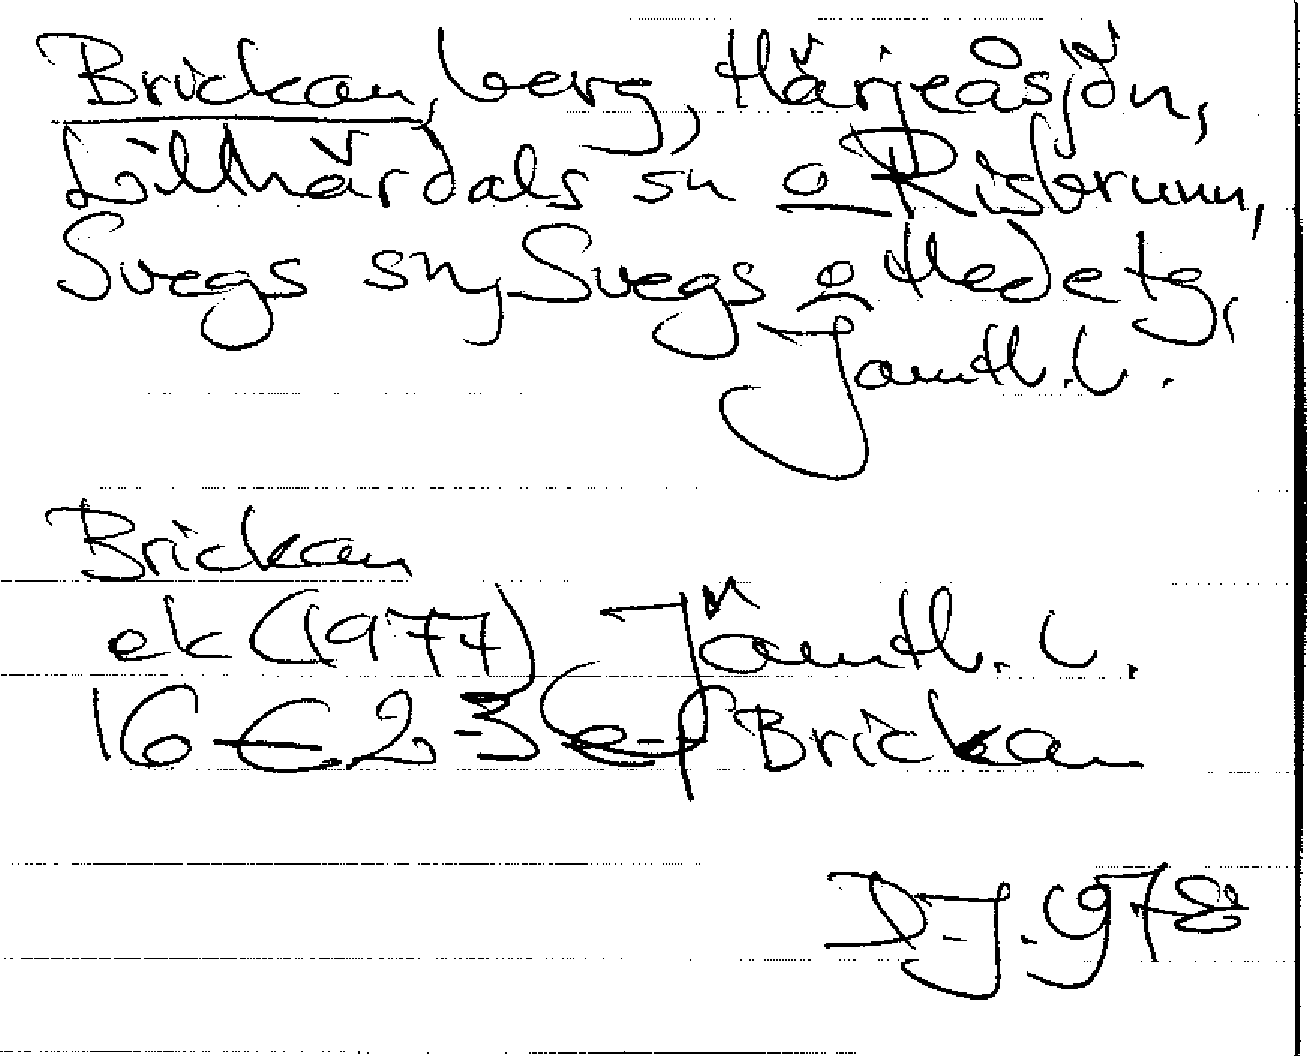 Brickan, berg, Härjeåsjön,
Lillhärdals sn o Risbrunn,
Svegs sn, Svegs o Hede tg,
Jämtl. l.
Brickan
ek (1977) Jämtl. l.
16 E 2-3 e-f Brickan
D.J. 978